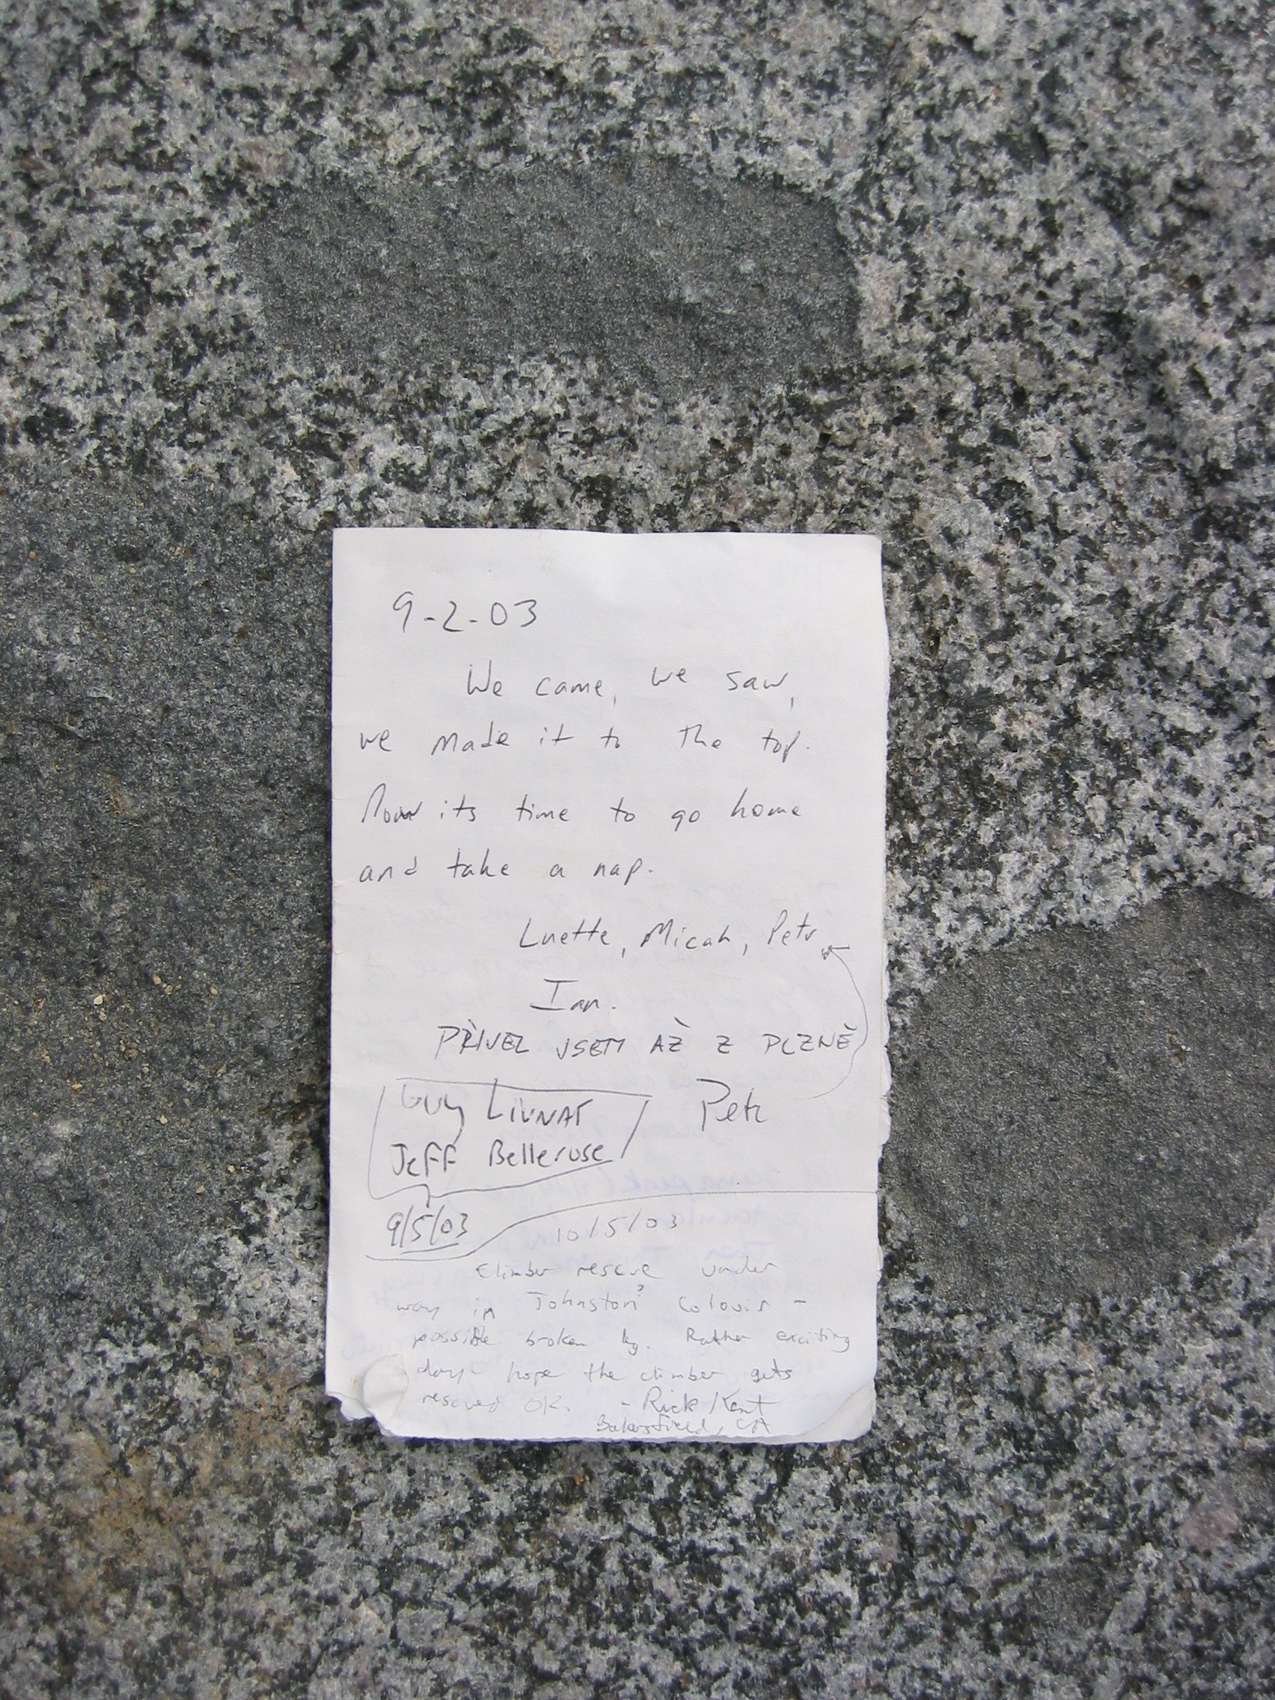 9-2-03
We came, we saw,
we made it to the top.
Now its time to go home
and take a nap.
Luette, Micah, Petr
Ian.
PŘIJEL JSEM AŽ Z PLZNĚ
Guy Livnat
Petr
Jeff Bellerose
9/5/03
10/5/03
Climber rescue under
way in Johnston, Colouir -
possible broken leg. Rather exciting
day hope the climber gets
rescued OK. - Rick Kent
Bakersfield, CA